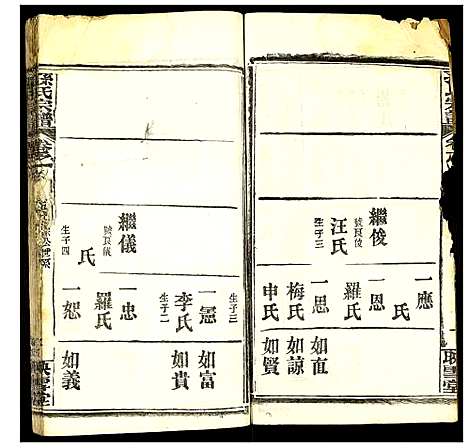 繼俊
號良俊
汪氏
生子三
一應
氏
一恩
羅氏
一思
梅氏
申氏
如直
如諒
如賢
映雪堂
孫氏宗譜
繼儀
號良儀
氏
生子四
生子三
一憲
李氏
生子二
一忠
羅氏
一恕
如富
如貴
如義
映雪堂